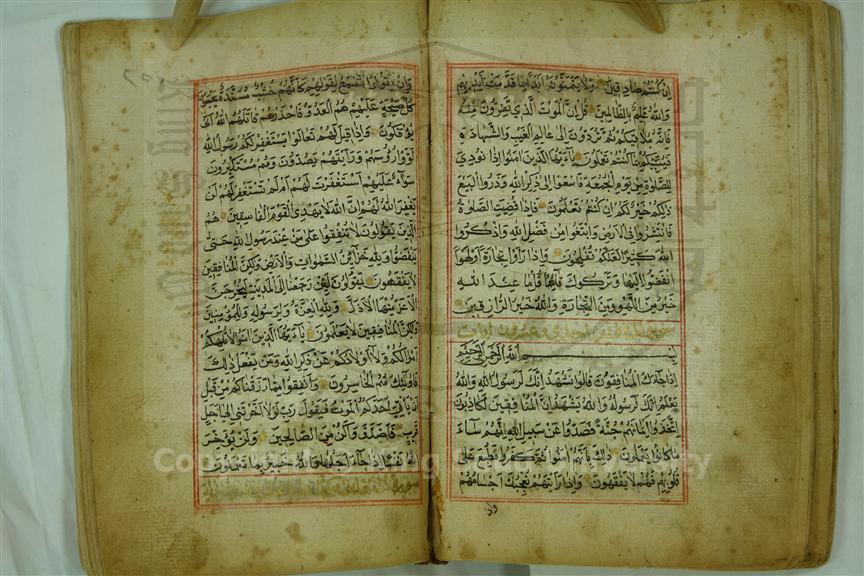 ان كنتم صادقين ولا يتمنونه ابدا بما قدمت ايديهم
والله عليم بالظالمين قل ان الموت الذي تفرون منه
فانه ملاقيكم ثم تردون الى عالم الغيب والشهادة
فينبئكم بما كنتم تعملون يا ايها الذين امنوا اذا نودي
للصلوة من يوم الجمعة فاسعوا الى ذكر الله وذروا البيع
ذلكم خير لكم ان كنتم تعلمون فاذا قضيت الصلوة
فانتشروا في الارض وابتغوا من فضل الله واذكروا
الله كثيرا لعلكم تفلحون واذا راوا تجارة او لهوا
انفضوا اليها وتركوك قائما قل ما عند الله
خير من اللهو ومن التجارة والله خير الرازقين
بسم الله الرحمن الرحيم
اذا جاءك المنافقون قالوا نشهد انك لرسول الله والله
يعلم انك لرسوله والله يشهد ان المنافقين لكاذبون
اتخذوا ايمانهم جنة فصدوا عن سبيل الله انهم ساء
ما كانوا يعملون ذلك بانهم امنوا ثم كفروا فطبع على
قلوبهم فهم لا يفقهون واذا رايتهم تعجبك اجسامهم
وان
وان يقولوا تسمع لقولهم كانهم خشب مسندة يحسبون
كل صيحة عليهم هم العدو فاحذرهم قاتلهم الله انى
يؤفكون واذا قيل لهم تعالوا يستغفر لكم رسول الله
لووا رؤسهم ورايتهم يصدون وهم مستكبرون
سواء عليهم استغفرت لهم ام لم تستغفر لهم لن
يغفر الله لهم ان الله لا يهدي القوم الفاسقين هم
الذين يقولون لا تنفقوا على من عند رسول الله حتى
ينفضوا ولله خزائن السموات والارض ولكن المنافقين
لا يفقهون يقولون لئن رجعنا الى المدينة ليخرجن
الاعز منها الاذل ولله العزة ولرسوله وللمؤمنين
ولكن المنافقين لا يعلمون يا ايها الذين امنوا لا تلهكم
اموالكم ولا اولادكم عن ذكر الله ومن يفعل ذلك
فاولئك هم الخاسرون وانفقوا مما رزقناكم من قبل
ان ياتي احدكم الموت فيقول رب لولا اخرتني الى اجل
قريب فاصدق واكن من الصالحين ولن يؤخر
الله نفسا اذا جاء اجلها والله خبير بما تعملون